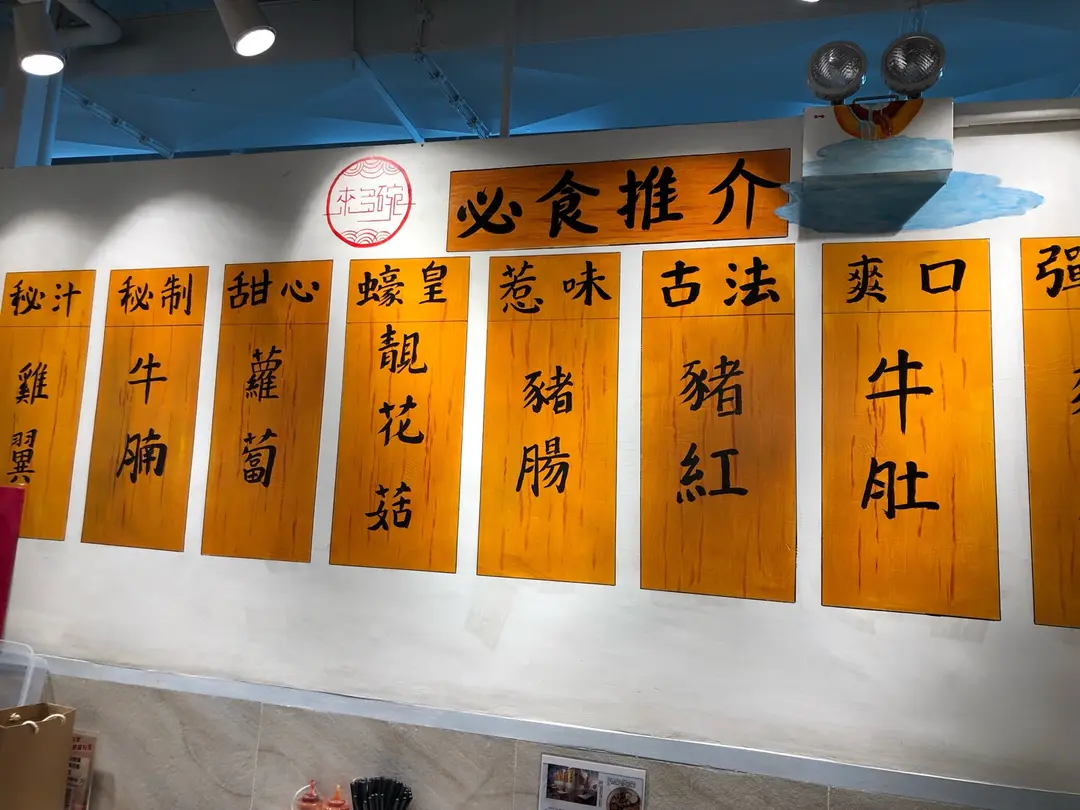 來多碗
必食推介
秘汁
雞翼
秘制
牛腩
甜心
蘿蔔
蠔皇
靚花菇
惹味
豬腸
古法
豬紅
爽口
牛肚
彈